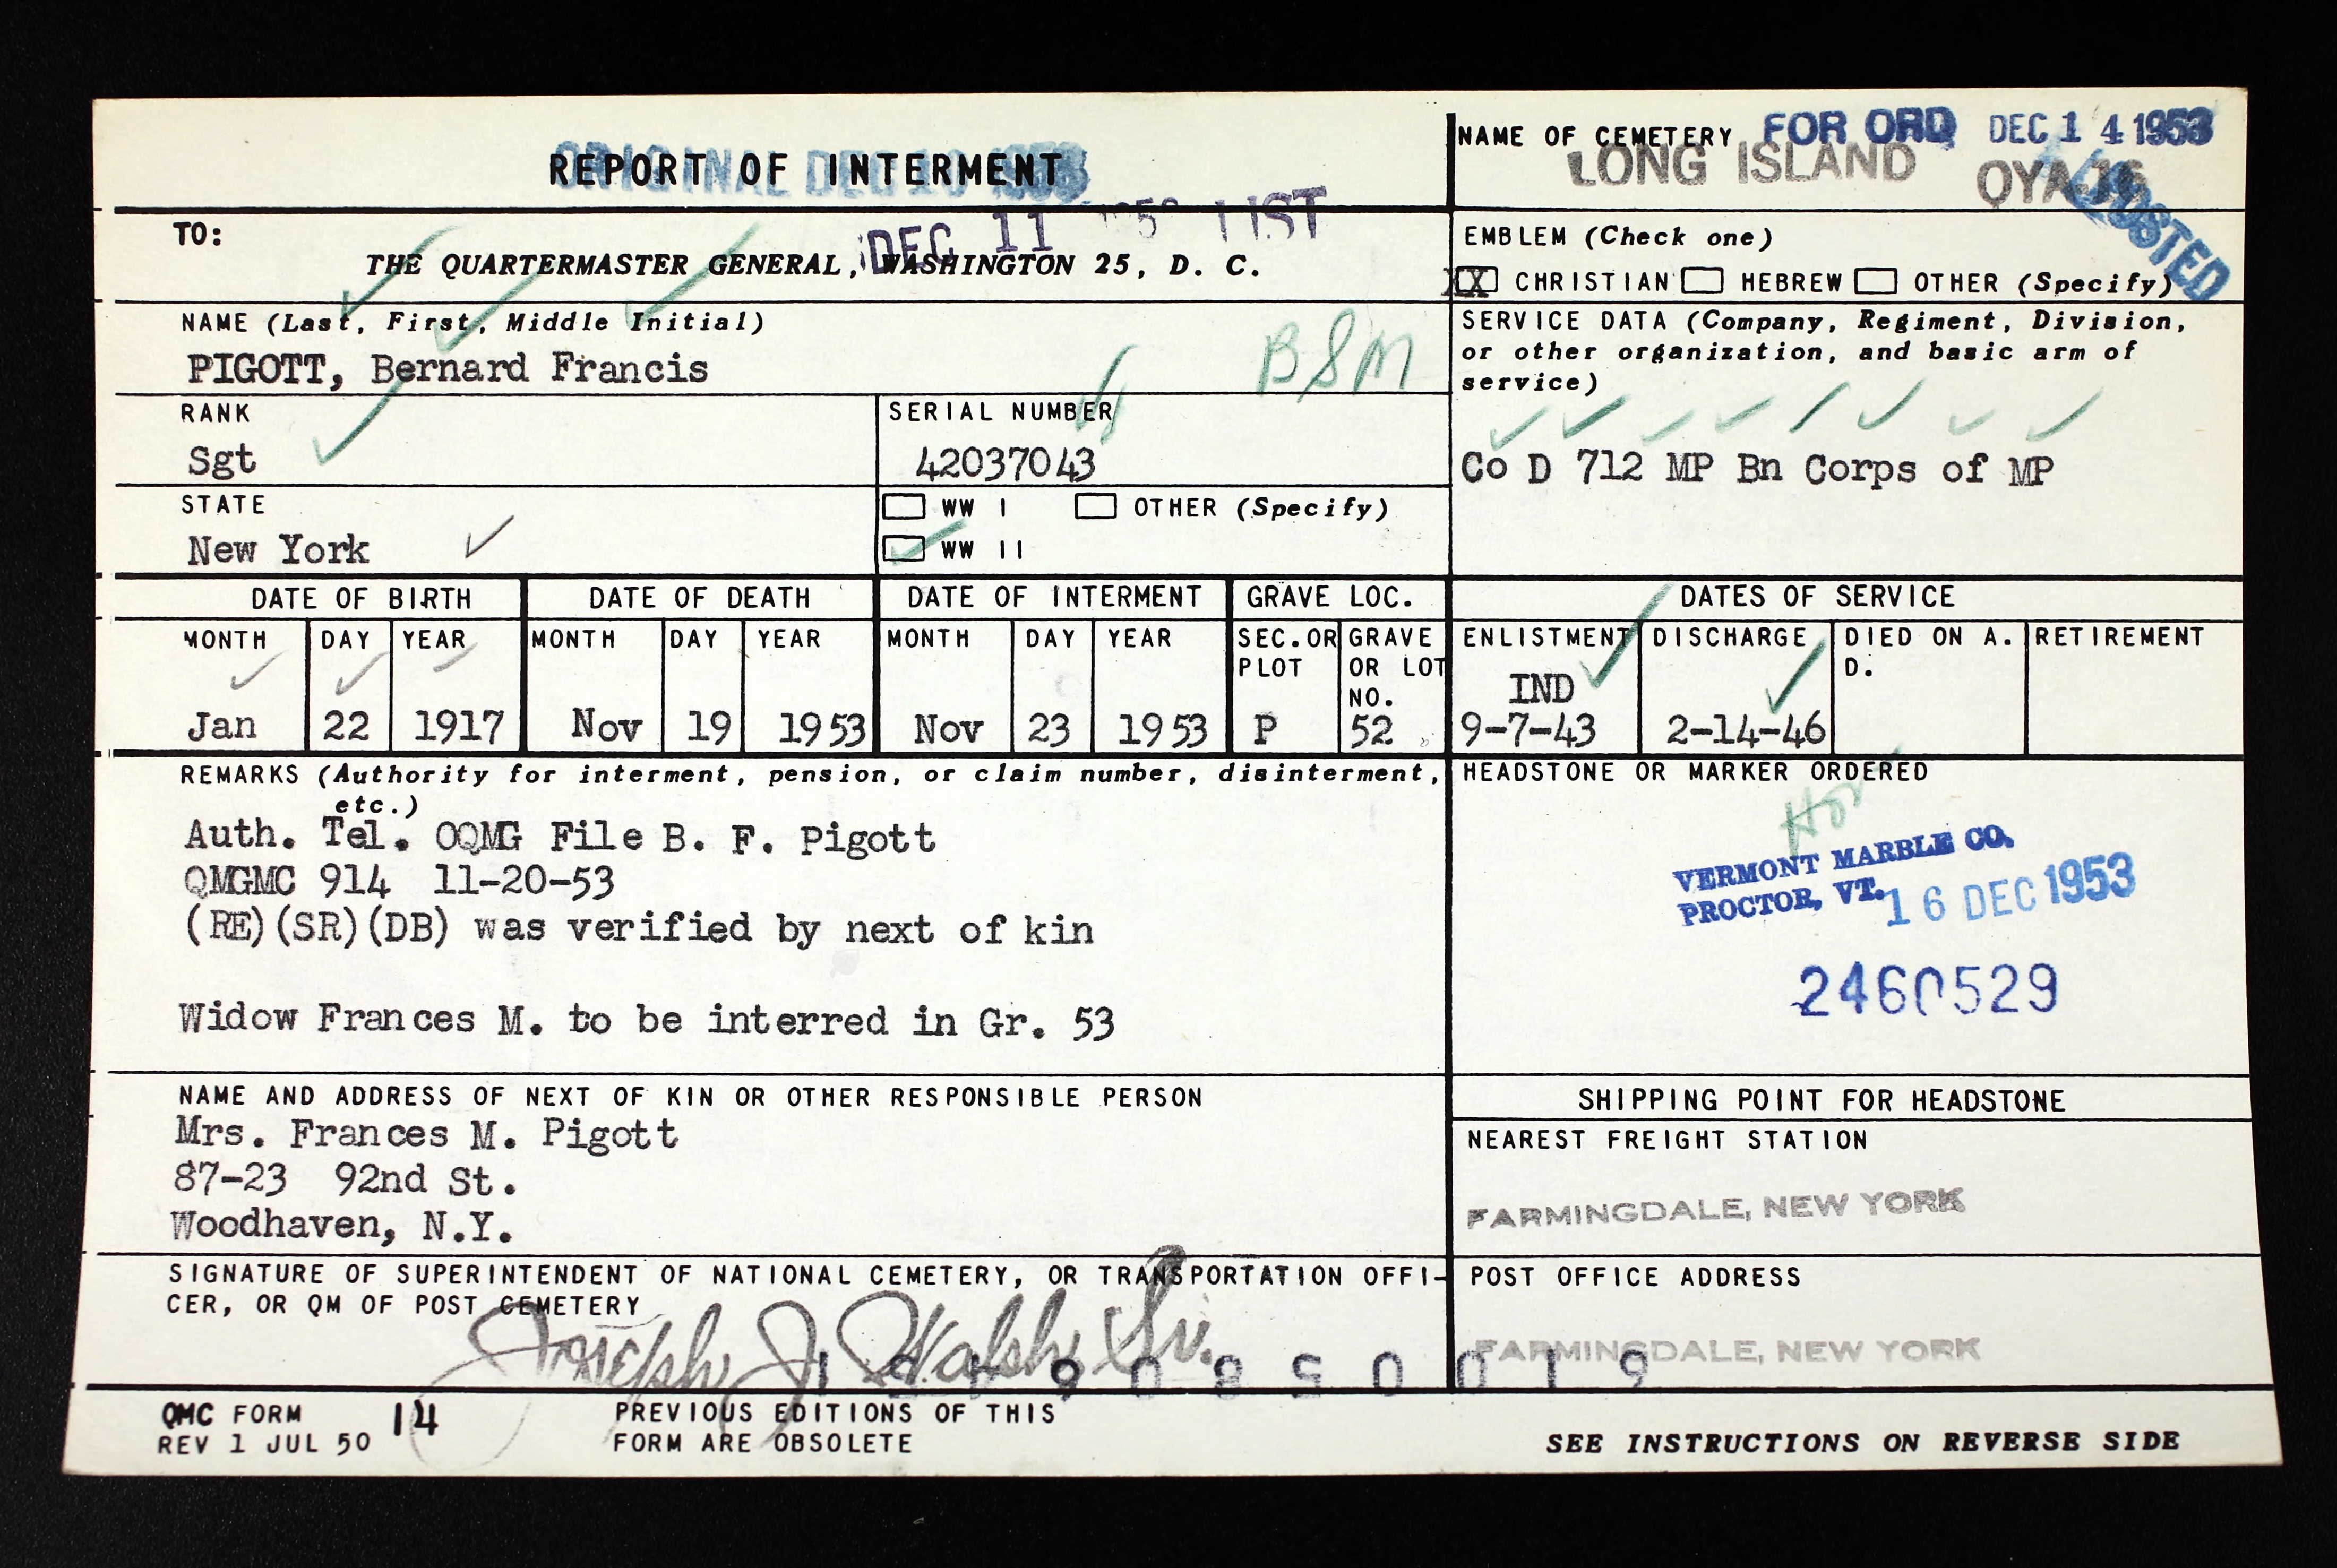 REPORT OF INTERMENT
ORIGINAL DEC 10 1953
DEC 11 LIST
TO:
THE QUARTERMASTER GENERAL, WASHINGTON 25, D. C.
NAME OF CEMETERY FOR ORD DEC 14 1953
LONG ISLAND OYA-16
POSTED
EMBLEM (Check one)
XX CHRISTIAN HEBREW OTHER (Specify)
NAME (Last, First, Middle Initial)
PIGOTT, Bernard Francis
BSM
SERVICE DATA (Company, Regiment, Division,
or other organization, and basic arm of
service)
Co D 712 MP Bn Corps of MP
RANK
Sgt
SERIAL NUMBER
42037043
STATE
New York
WW I OTHER (Specify)
WW II
DATE OF BIRTH DATE OF DEATH DATE OF INTERMENT GRAVE LOC. DATES OF SERVICE
MONTH DAY YEAR MONTH DAY YEAR MONTH DAY YEAR SEC.OR PLOT GRAVE OR LOT NO. ENLISTMENT DISCHARGE DIED ON A. D. RETIREMENT
IND
Jan 22 1917 Nov 19 1953 Nov 23 1953 P 52 9-7-43 2-14-46
REMARKS (Authority for interment, pension, or claim number, disinterment,
etc.)
Auth. Tel. OQMG File B. F. Pigott
QMGMC 914 11-20-53
(RE)(SR)(DB) was verified by next of kin
Widow Frances M. to be interred in Gr. 53
HEADSTONE OR MARKER ORDERED
VERMONT MARBLE CO.
PROCTOR, VT. 16 DEC 1953
2460529
NAME AND ADDRESS OF NEXT OF KIN OR OTHER RESPONSIBLE PERSON
Mrs. Frances M. Pigott
87-23 92nd St.
Woodhaven, N.Y.
SHIPPING POINT FOR HEADSTONE
NEAREST FREIGHT STATION
FARMINGDALE, NEW YORK
SIGNATURE OF SUPERINTENDENT OF NATIONAL CEMETERY, OR TRANSPORTATION OFFI-
CER, OR QM OF POST CEMETERY
Joseph J. Walsh Sr.
POST OFFICE ADDRESS
FARMINGDALE, NEW YORK
QMC FORM 14
REV 1 JUL 50
PREVIOUS EDITIONS OF THIS
FORM ARE OBSOLETE
SEE INSTRUCTIONS ON REVERSE SIDE